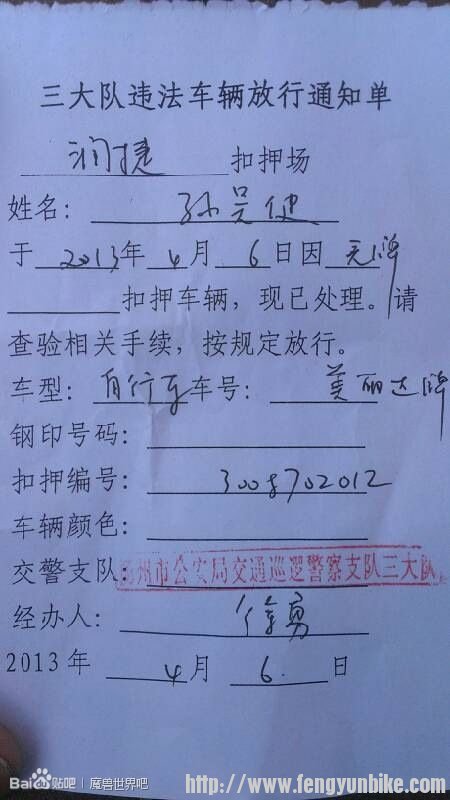 三大队违法车辆放行通知单
润捷 扣押场
姓名: 孙吴健
于 2013年 4月 6日因 无牌
扣押车辆,现已处理。请
查验相关手续,按规定放行。
车型: 自行车 车号: 美丽达牌
钢印号码:
扣押编号: 3008702012
车辆颜色:
交警支队: 扬州市公安局交通巡逻警察支队三大队
经办人: 徐勇
2013年 4月 6. 日
Bai du 贴吧 | 魔兽世界吧
http://www.fengyunbike.com